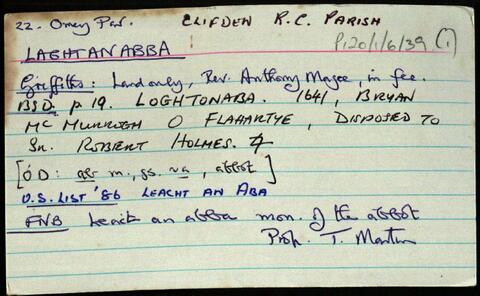 22. Omey Par. CLIFDEN R.C. PARISH
P120/1/6/39 (1)
LAGHTANABBA
Griffiths: Land only, Rev. Anthony Magee, in fee.
BSD. p 19. LOGHTONABA. 1641, BRYAN
MC MURROGH O FLAHARTYE, DISPOSED TO
SR. ROBERT HOLMES.
[ÓD: ab m., gs. -va, abbot]
O.S. LIST '86 LEACHT AN ABA
FNB Leact an abba mon. of the abbot
Prop. T. Martin